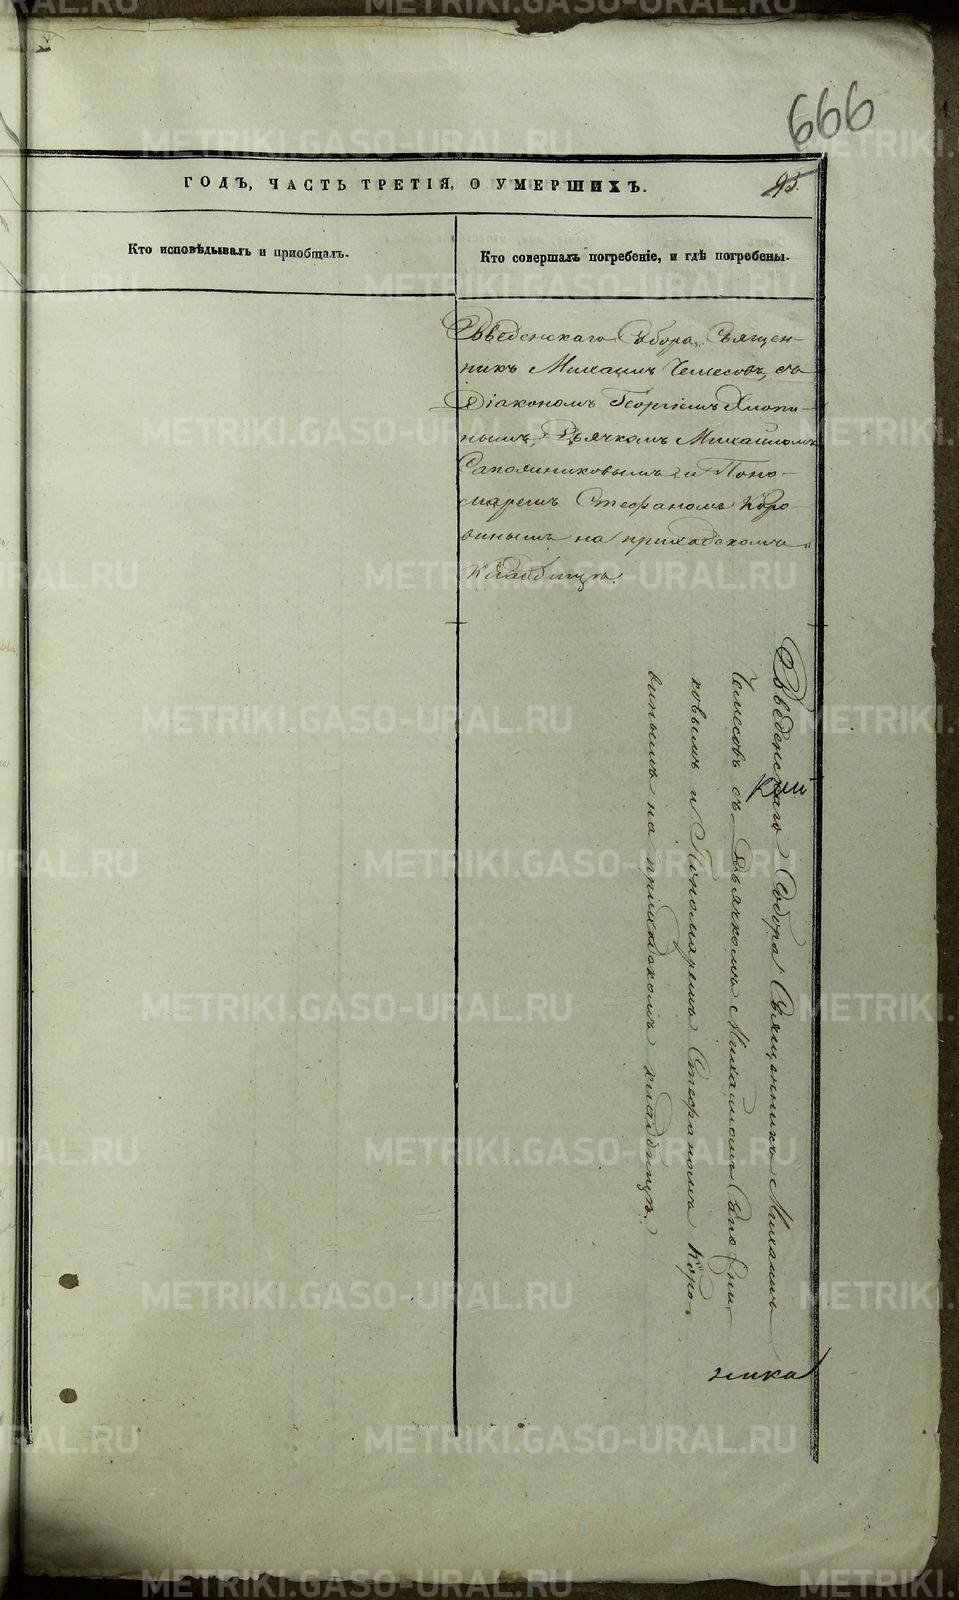 666
ГОДЪ, ЧАСТЬ ТРЕТІЯ, О УМЕРШИХЪ.
95.
Кто исповѣдывалъ и пріобщалъ.
Кто совершалъ погребеніе, и гдѣ погребены.
Введенскаго Собора Священ-
никъ Михаилъ Чемесовъ, съ
Діакономъ Георгіемъ Хлопи-
нымъ, Дьячкомъ Михаиломъ
Сапожниковымъ и Поно-
маремъ Стефаномъ Коро-
винымъ на приходскомъ
кладбищѣ.
Введенскаго Собора Священникъ Михаилъ
Чемесовъ съ Дьячкомъ Михаиломъ Сапожни-
ковымъ и Пономаремъ Стефаномъ Коро-
винымъ на приходскомъ кладбищѣ.
ника
METRIKI.GASO-URAL.RU